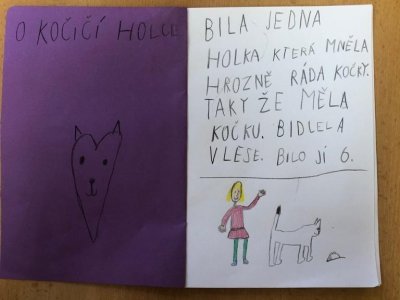 O KOČIČÍ HOLCE
BILA JEDNA
HOLKA KTERÁ MNĚLA
HROZNĚ RÁDA KOČKY.
TAKY ŽE MĚLA
KOČKU. BIDLELA
V LESE. BILO JÍ 6.